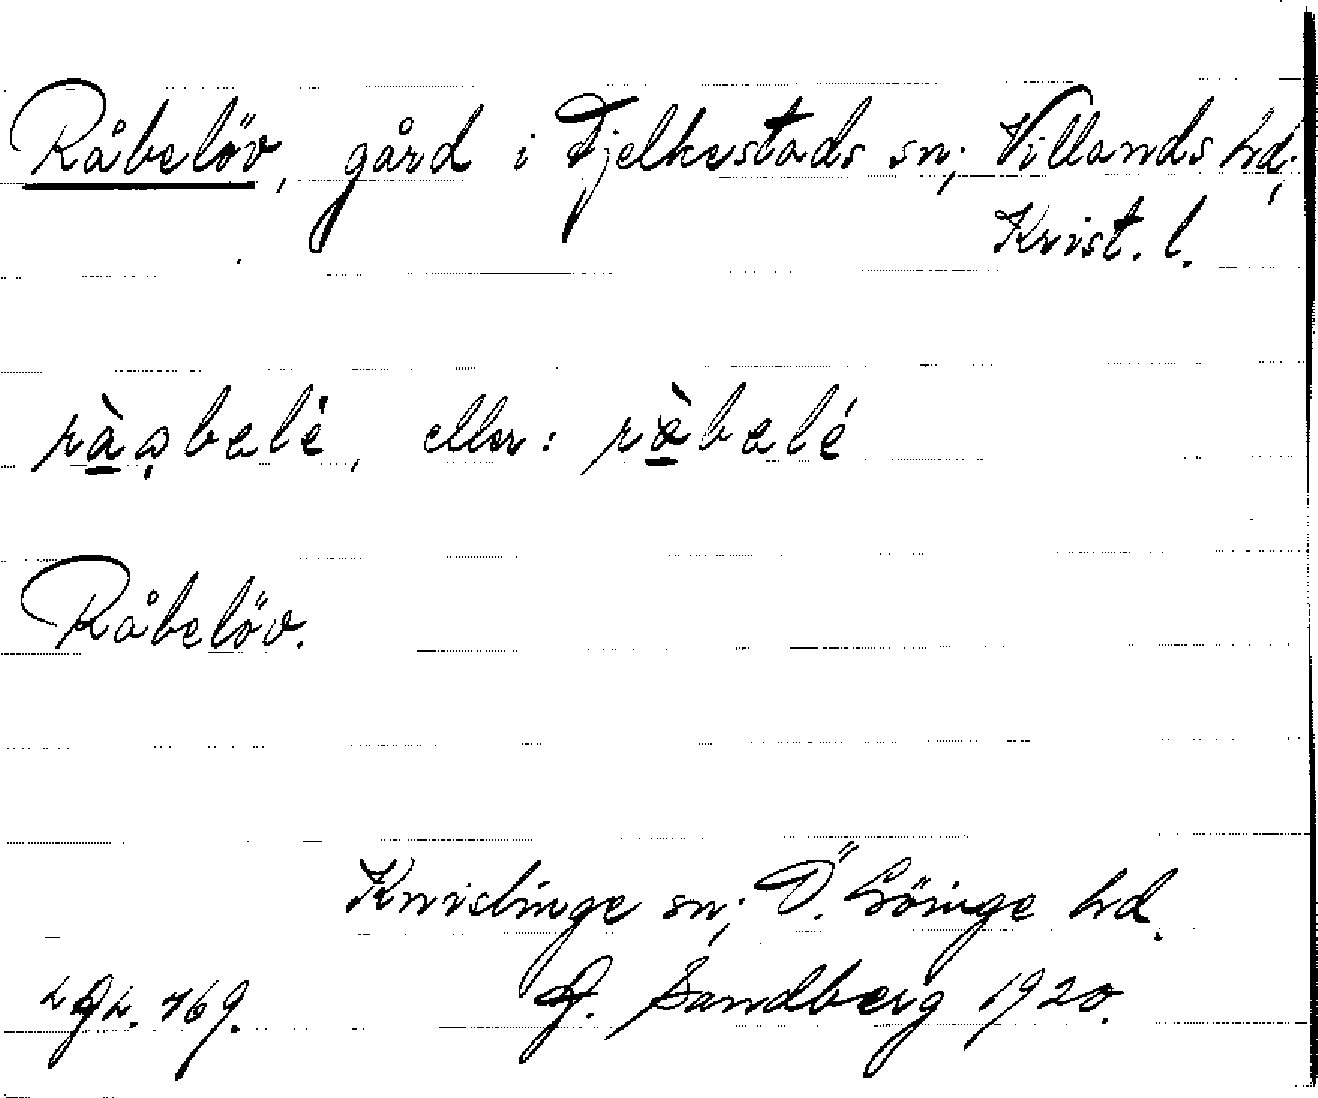 Råbelöv, gård i Fjelkestads sn; Villands hd;
Krist. l.
ràǫbelé, eller: ràbelé
Råbelöv.
Knislinge sn; Ö. Göinge hd.
769. Sandberg 1920.